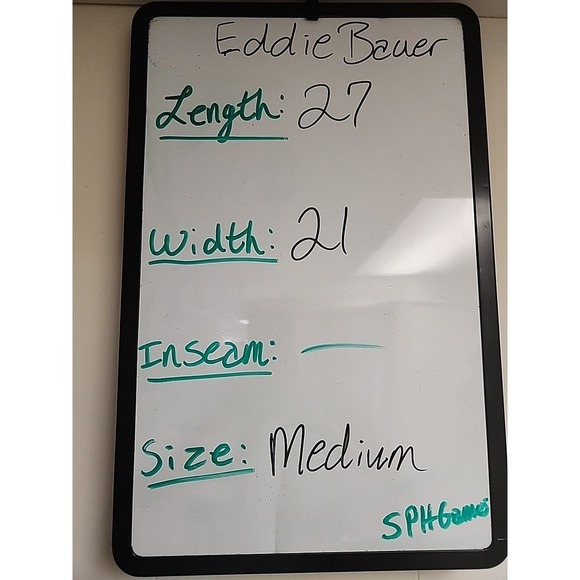 Eddie Bauer
Length: 27
Width: 21
Inseam: —
Size: Medium
SPHGames